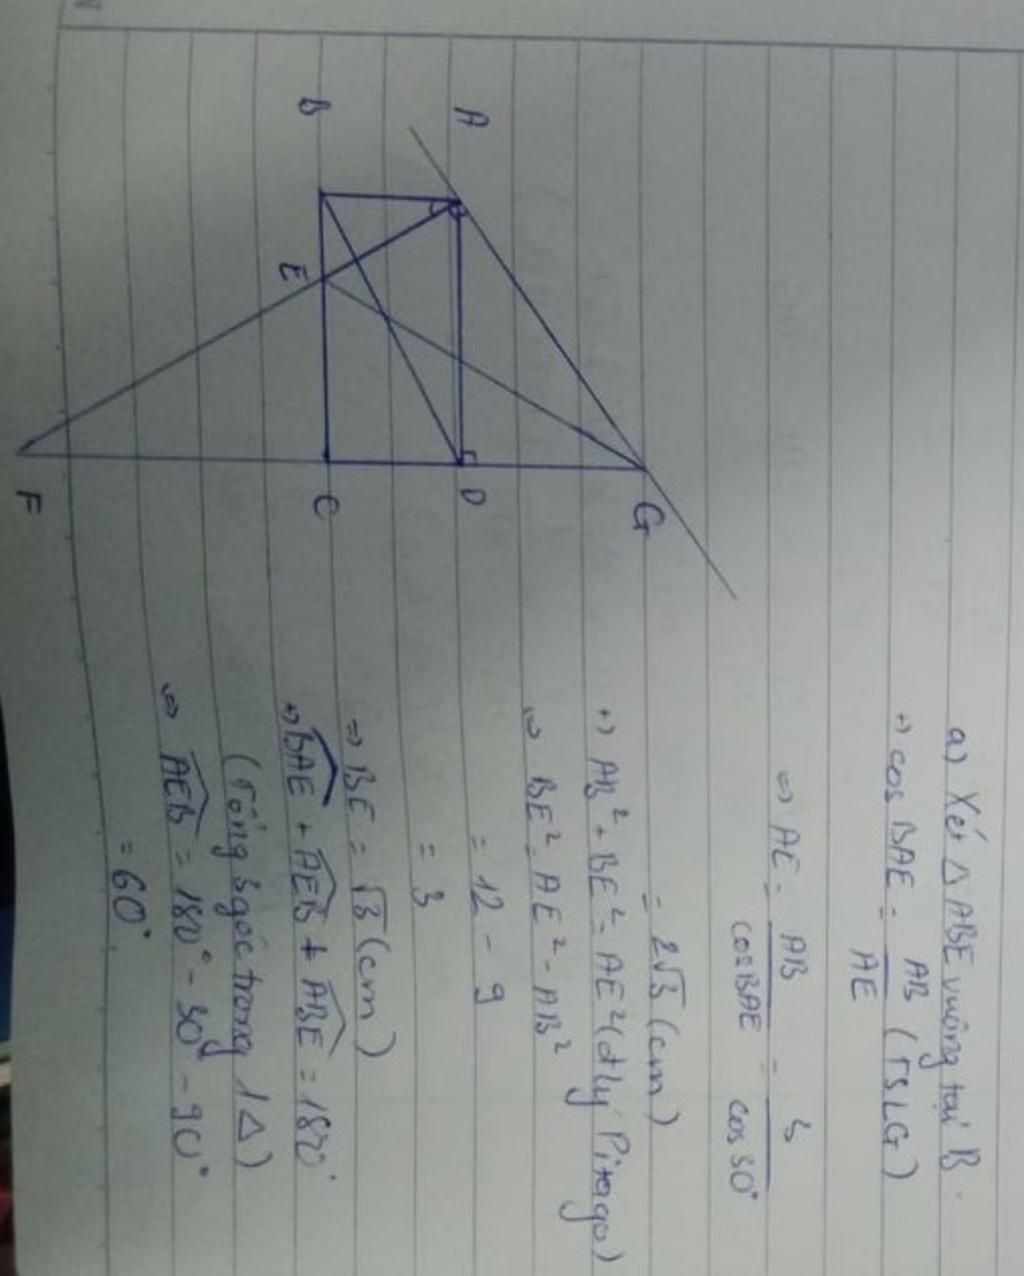 A
B
E
G
D
C
F
a) Xét Δ ABE vuông tại B.
+) cos BAE = AB/AE (TSLG)
=> AE = AB/cosBAE = 3/cos30°
= 2√3 (cm)
+) AB² + BE² = AE² (đ/lý Pitago)
=> BE² = AE² - AB²
= 12 - 9
= 3
=> BE = √3 (cm)
+) BAE + AEB + ABE = 180°
(Tổng 3 góc trong 1 Δ)
=> AEB = 180° - 30° - 90°
= 60°